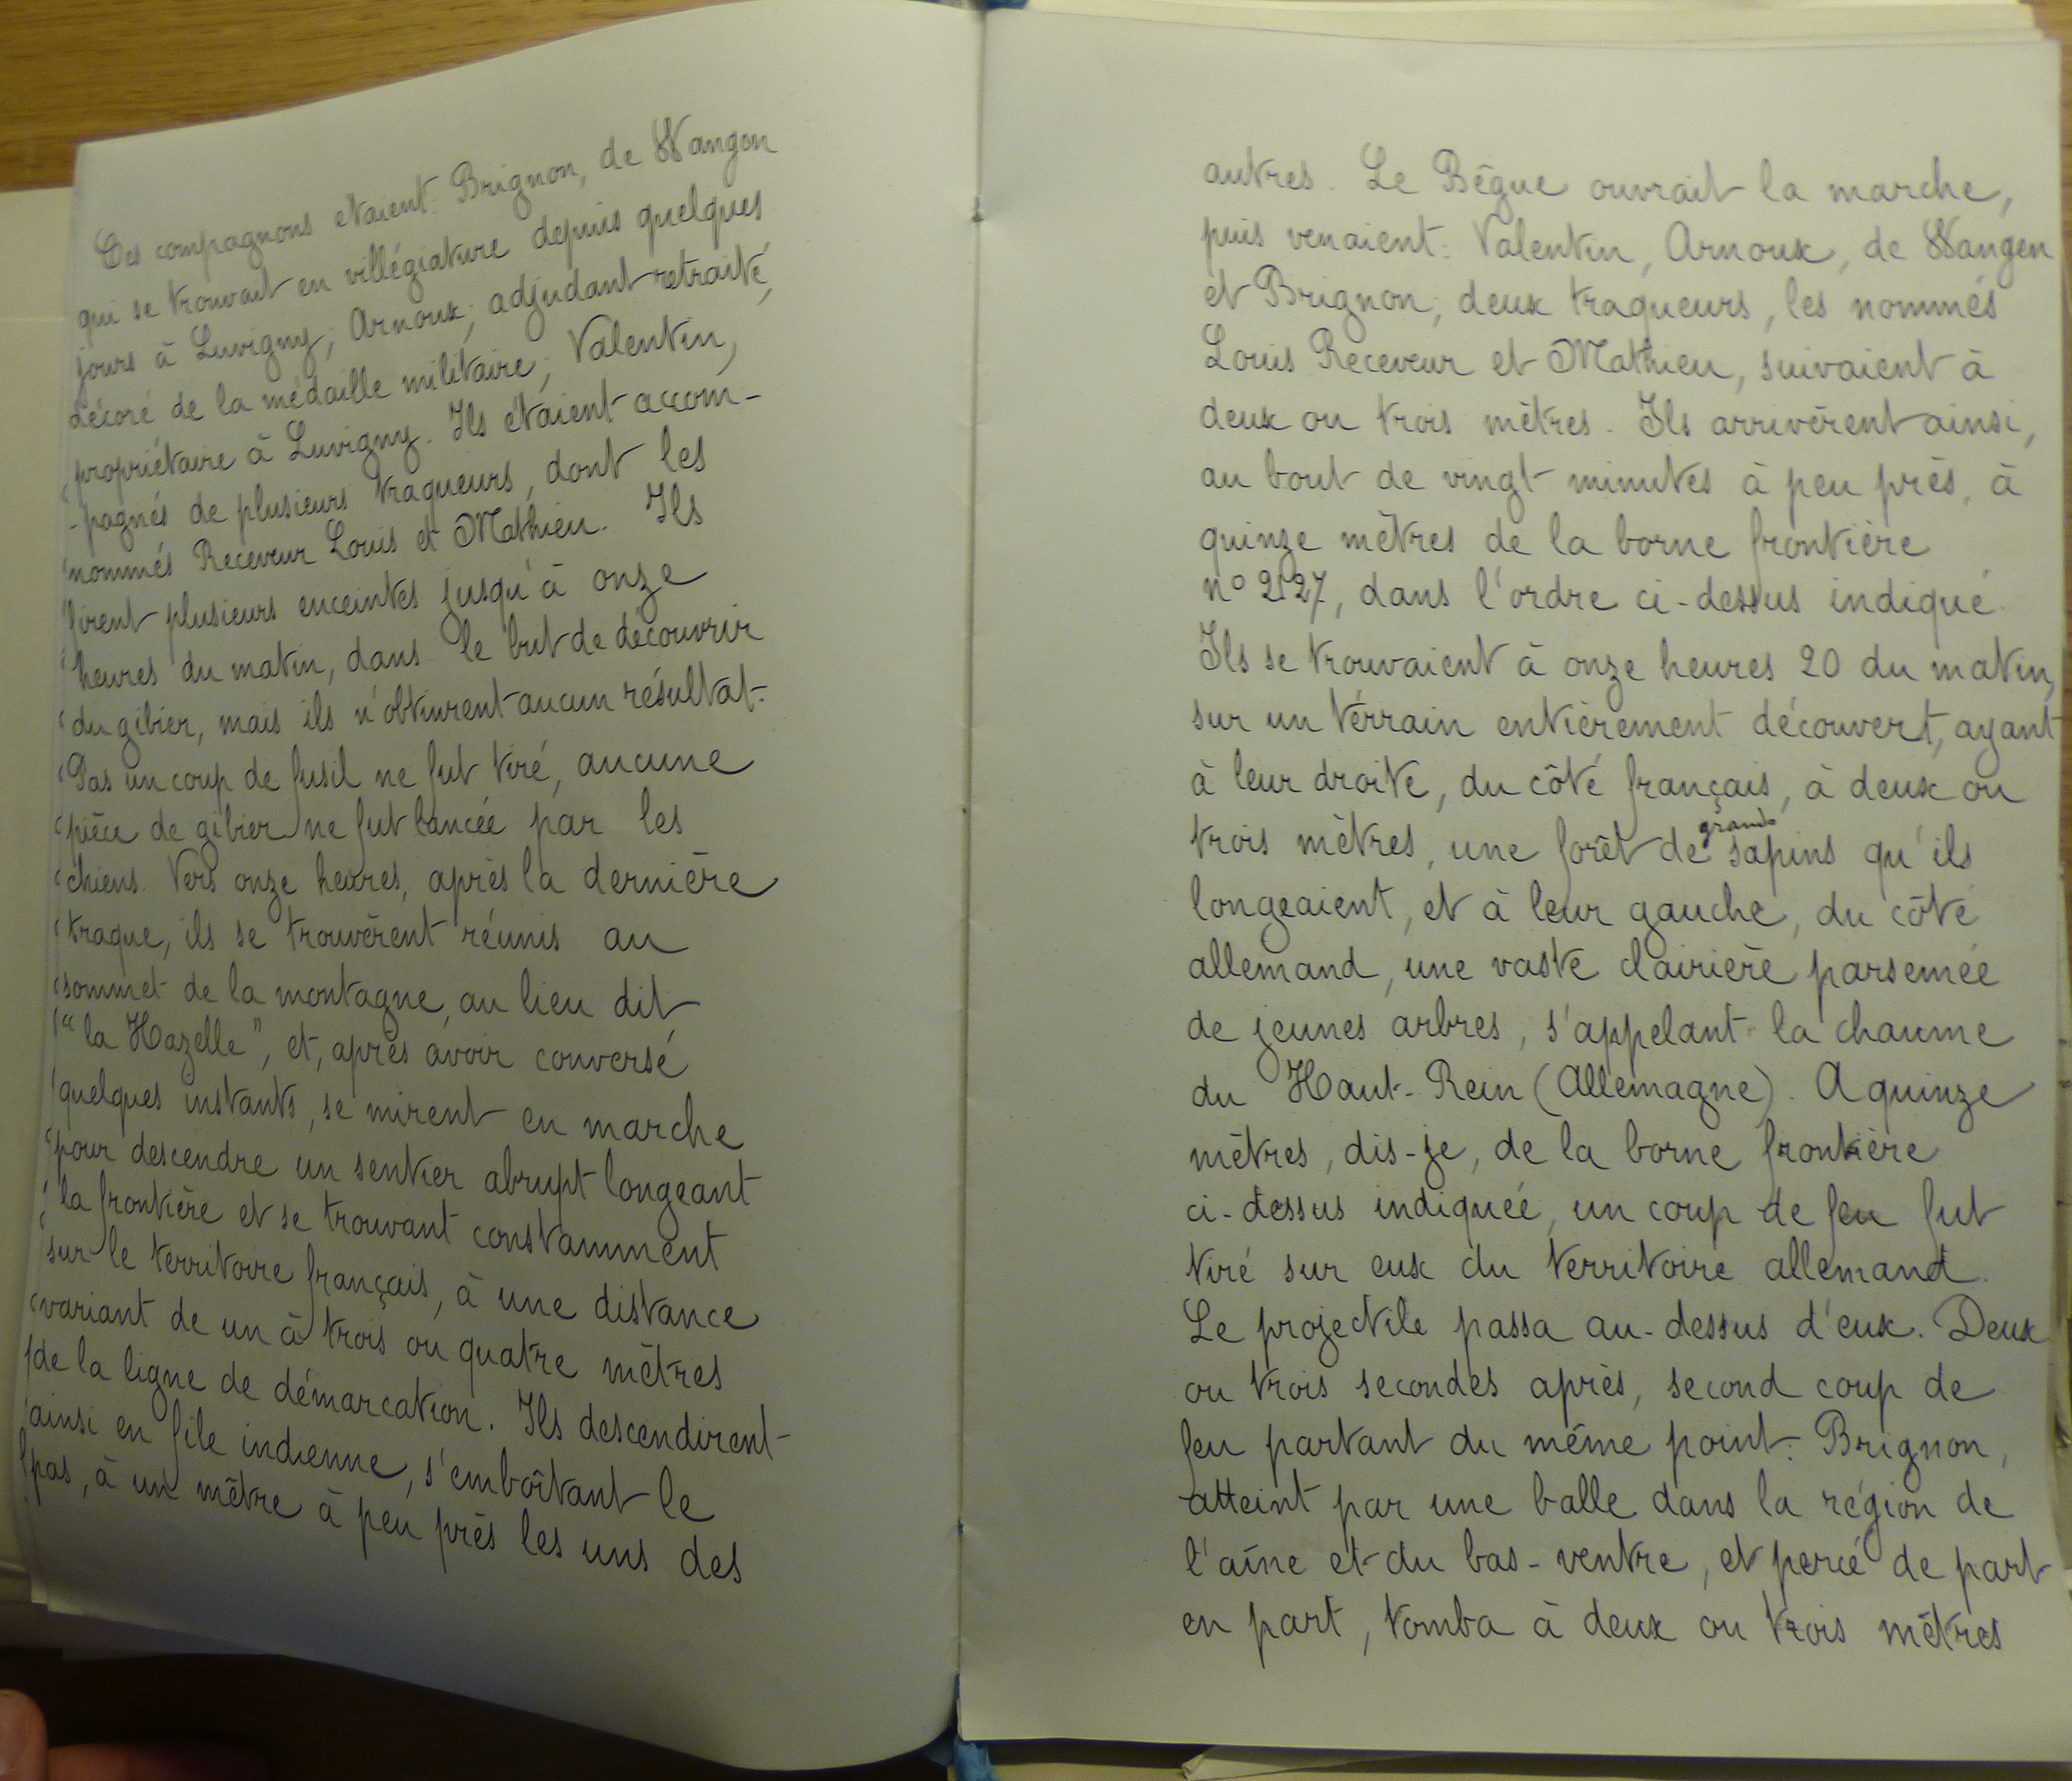 Ces compagnons étaient: Brignon, de Wangen
qui se trouvait en villégiature depuis quelques
jours à Luvigny; Arnoux, adjudant retraité,
décoré de la médaille militaire; Valentin,
propriétaire à Luvigny. Ils étaient accom-
-pagnés de plusieurs traqueurs, dont les
nommés Receveur Louis et Mathieu. Ils
firent plusieurs enceintes jusqu'à onze
heures du matin, dans le but de découvrir
du gibier, mais ils n'obtinrent aucun résultat.
Pas un coup de fusil ne fut tiré, aucune
pièce de gibier ne fut lancée par les
chiens. Vers onze heures, après la dernière
traque, ils se trouvèrent réunis au
sommet de la montagne, au lieu dit
"la Hazelle", et, après avoir conversé
quelques instants, se mirent en marche
pour descendre un sentier abrupt longeant
la frontière et se trouvant constamment
sur le territoire français, à une distance
variant de un à trois ou quatre mètres
de la ligne de démarcation. Ils descendirent
ainsi en file indienne, s'emboîtant le
pas, à un mètre à peu près les uns des
autres. Le Bègue ouvrait la marche,
puis venaient: Valentin, Arnoux, de Wangen
et Brignon; deux traqueurs, les nommés
Louis Receveur et Mathieu, suivaient à
deux ou trois mètres. Ils arrivèrent ainsi,
au bout de vingt minutes à peu près, à
quinze mètres de la borne frontière
n° 2127, dans l'ordre ci-dessus indiqué.
Ils se trouvaient à onze heures 20 du matin,
sur un térrain entièrement découvert, ayant
à leur droite, du côté français, à deux ou
trois mètres, une forêt de grands sapins qu'ils
longeaient, et à leur gauche, du côté
allemand, une vaste clairière parsemée
de jeunes arbres, s'appelant la chaume
du Haut-Rein (Allemagne). A quinze
mètres, dis-je, de la borne frontière
ci-dessus indiquée, un coup de feu fut
tiré sur eux du territoire allemand.
Le projectile passa au-dessus d'eux. Deux
ou trois secondes après, second coup de
feu partant du même point: Brignon,
atteint par une balle dans la région de
l'aîne et du bas-ventre, et percé de part
en part, tomba à deux ou trois mètres